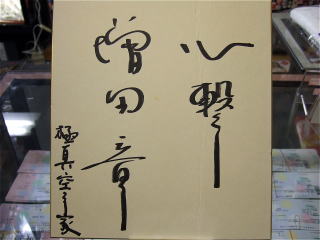 心撃
増田章
極真空手家